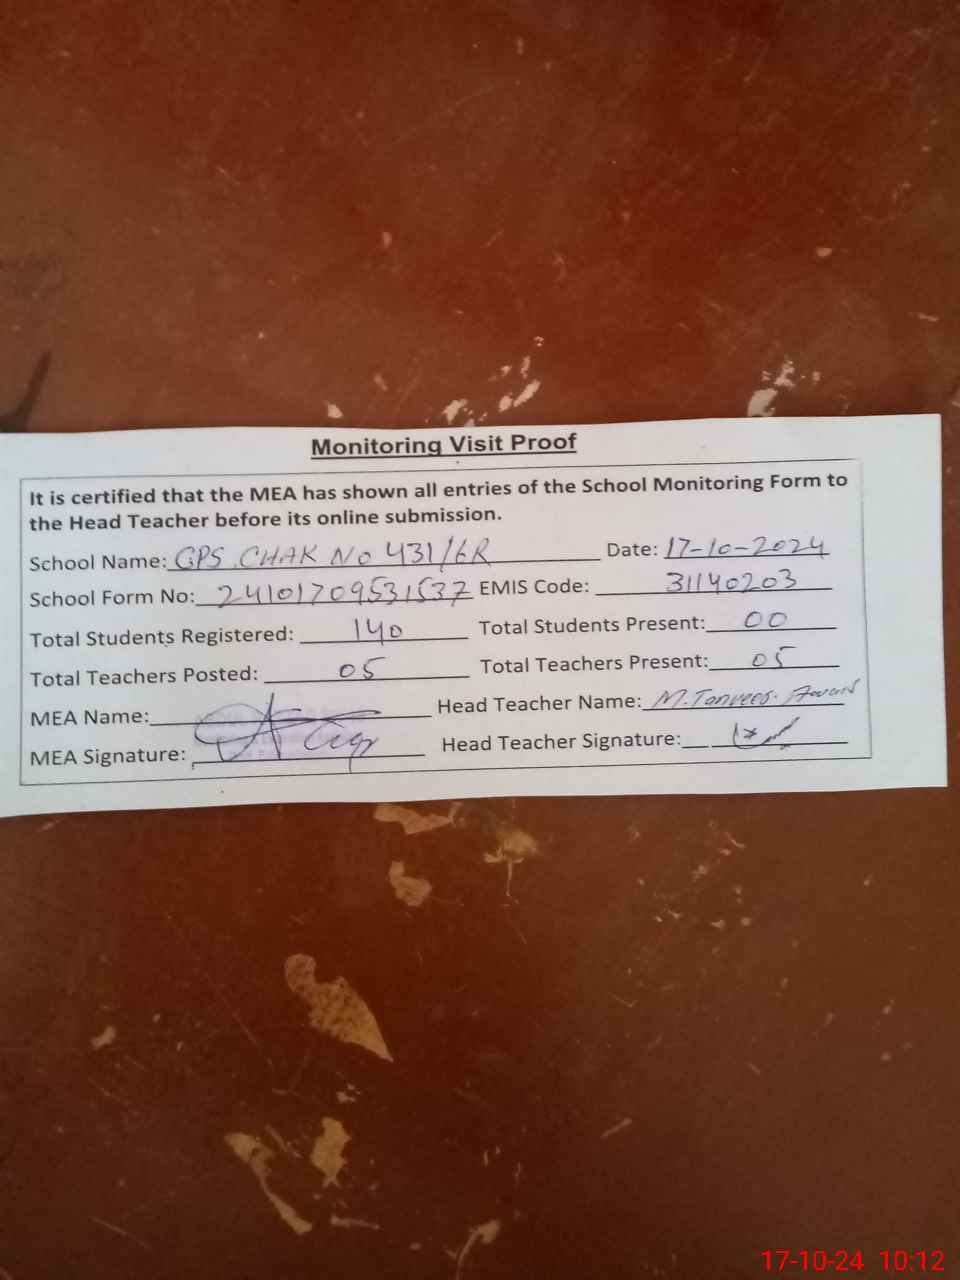 Monitoring Visit Proof
It is certified that the MEA has shown all entries of the School Monitoring Form to
the Head Teacher before its online submission.
School Name: GPS. CHAK NO 431/6R Date: 17-10-2024
School Form No: 24101709531537 EMIS Code: 31140203
Total Students Registered: 140 Total Students Present: 00
Total Teachers Posted: 05 Total Teachers Present: 05
MEA Name: Head Teacher Name: M. Tanveer
MEA Signature: Head Teacher Signature:
17-10-24 10:12